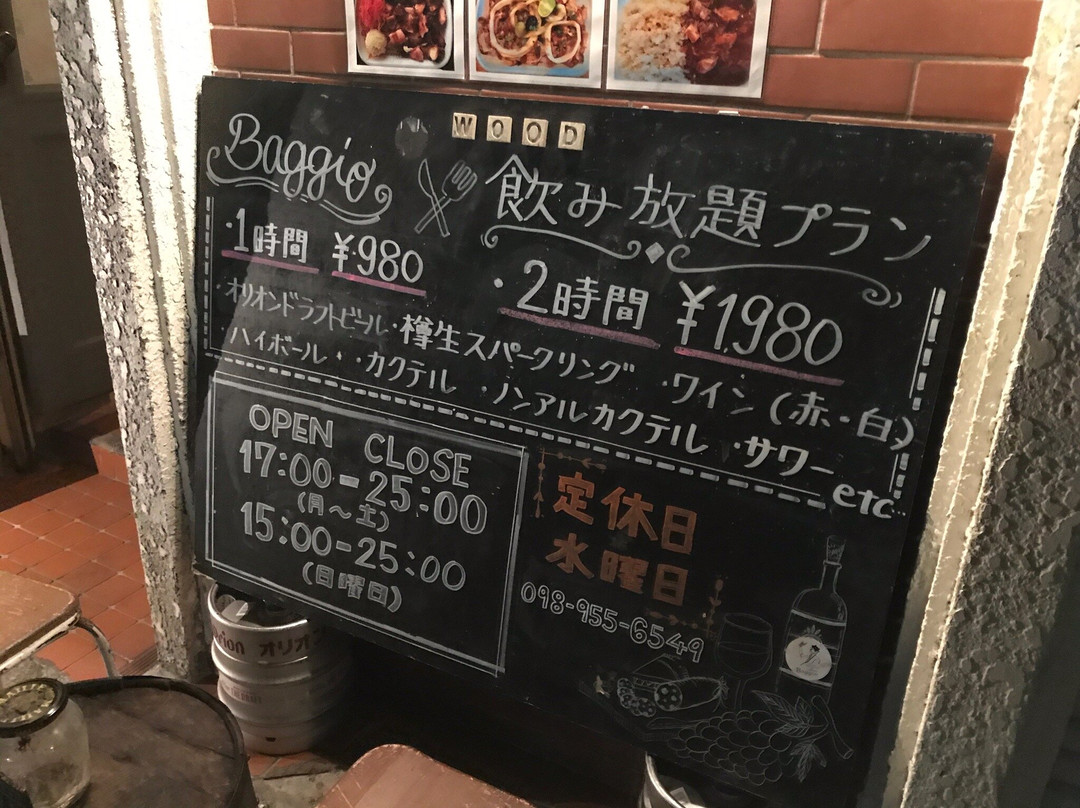 WOOD
Baggio 飲み放題プラン
・1時間 ¥980 ・2時間 ¥1,980
・オリオンドラフトビール・樽生スパークリング ・ワイン(赤・白)
ハイボール ・・カクテル ・ノンアルカクテル ・サワー
etc..
OPEN CLOSE
17:00-25:00
(月〜土)
15:00-25:00
(日曜日)
定休日
水曜日
098-955-6549
オリオ